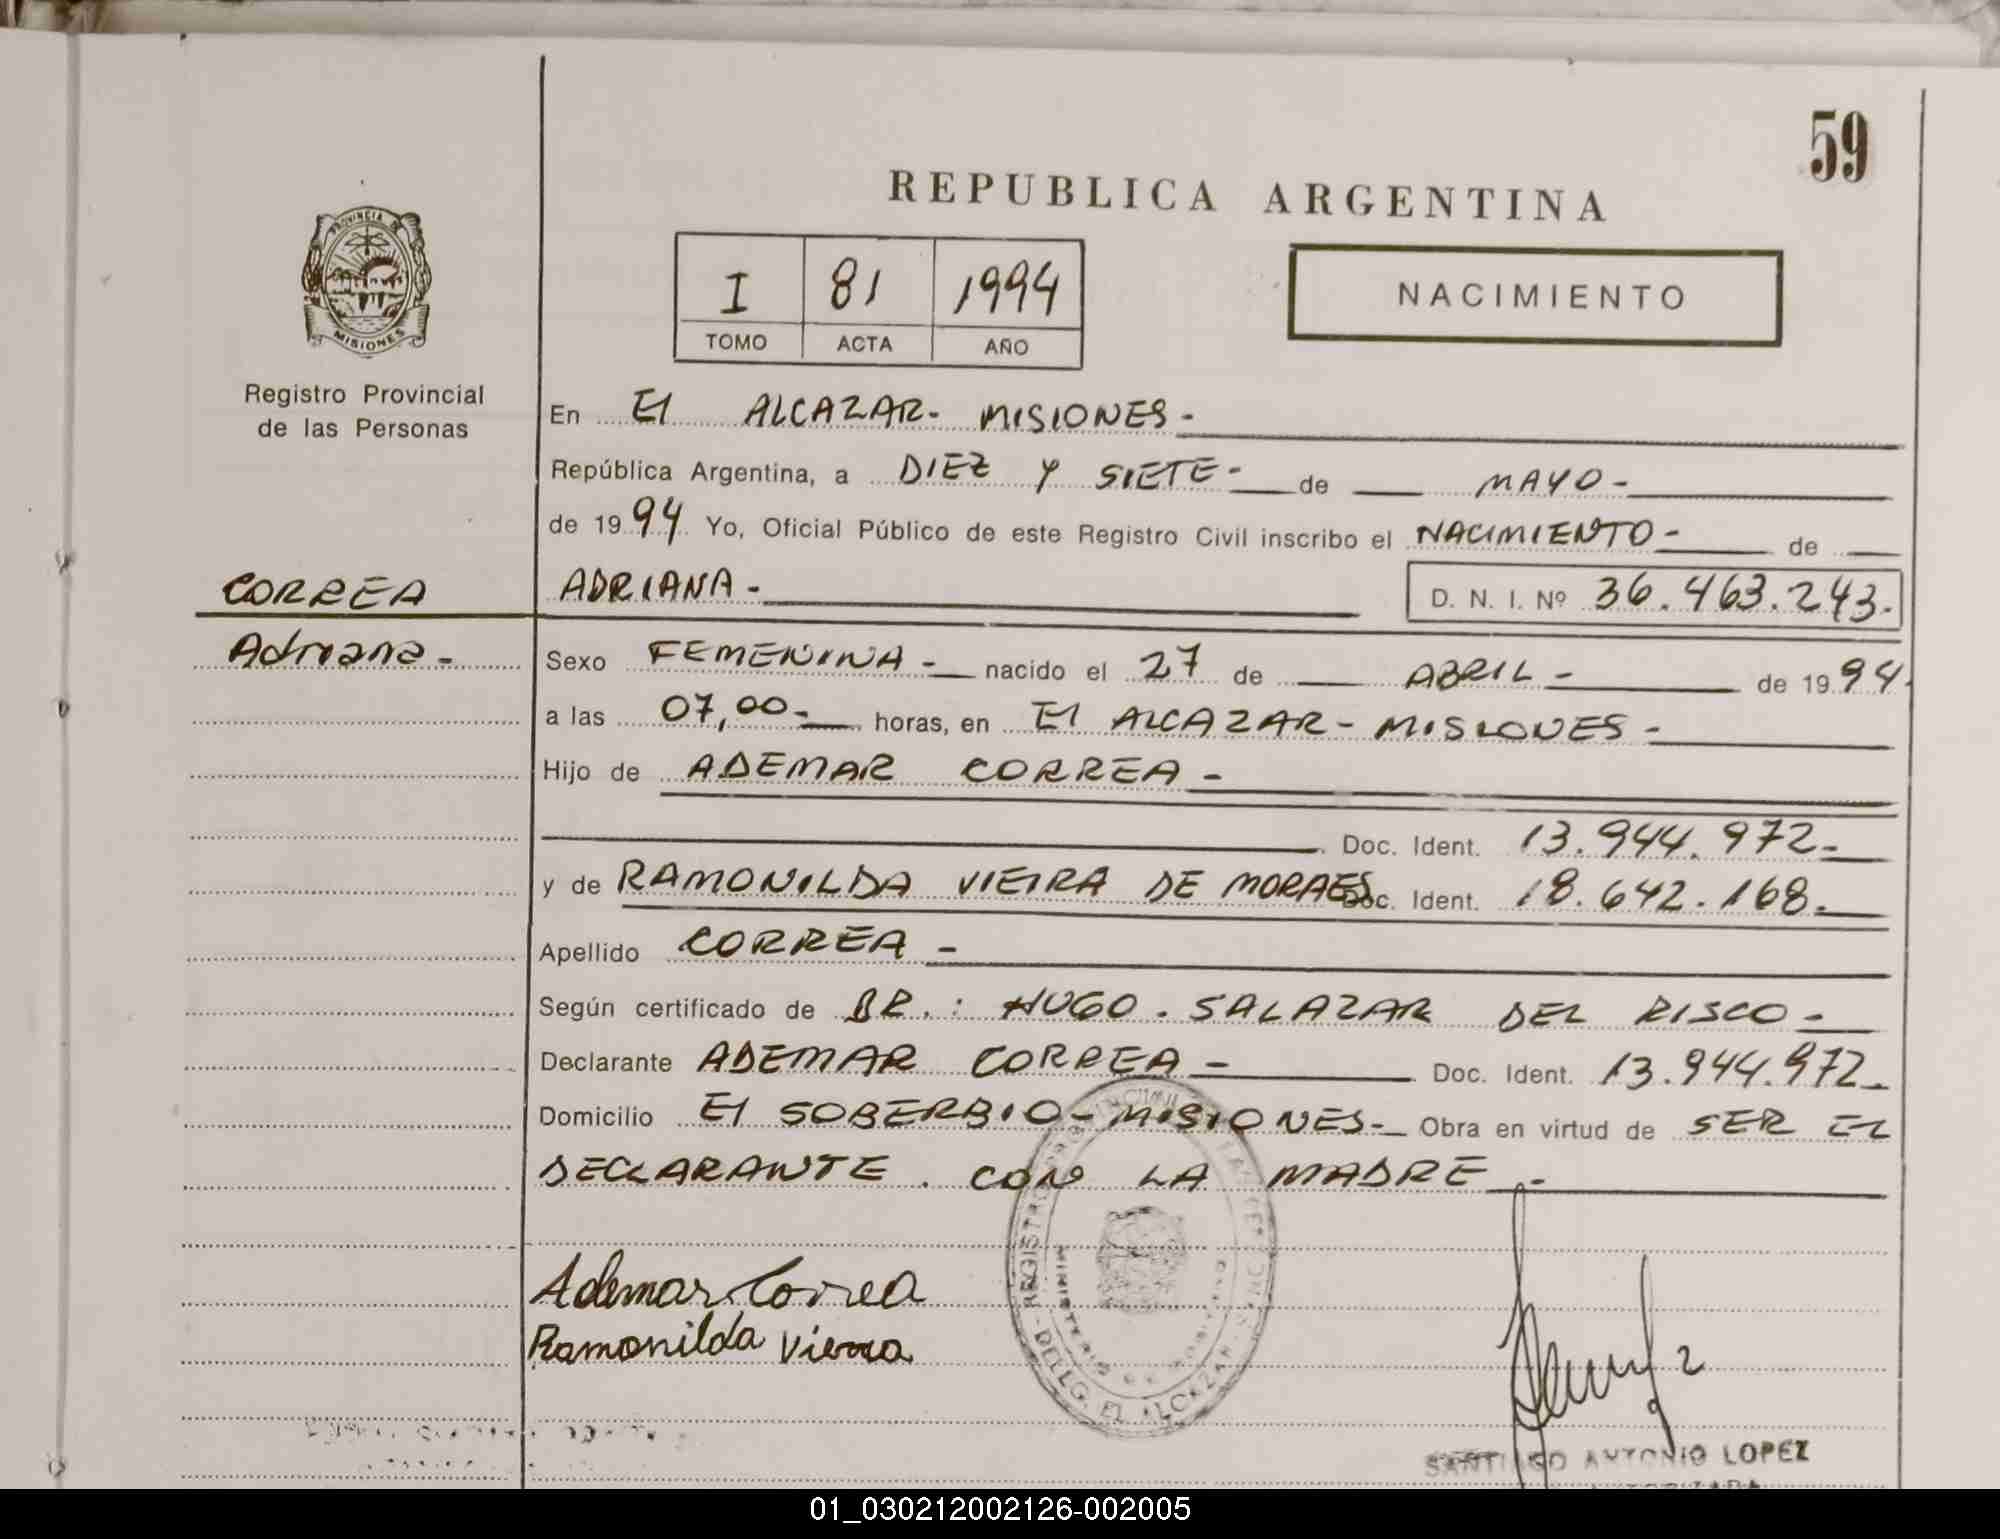 59
REPUBLICA ARGENTINA
PROVINCIA DE
MISIONES
I 81 1994
TOMO ACTA AÑO
NACIMIENTO
Registro Provincial
de las Personas
En El ALCAZAR- MISIONES-
República Argentina, a DIEZ Y SIETE- de MAYO-
de 1994 Yo, Oficial Público de este Registro Civil inscribo el NACIMIENTO- de
CORREA ADRIANA- D. N. I. Nº 36.463.243.
Adriana- Sexo FEMENINA- nacido el 27 de ABRIL- de 1994
a las 07,00- horas, en El ALCAZAR- MISIONES-
Hijo de ADEMAR CORREA-
Doc. Ident. 13.944.972-
y de RAMONILDA VIEIRA DE MORAES Doc. Ident. 18.642.168.
Apellido CORREA-
Según certificado de DR.: HUGO. SALAZAR DEL RISCO-
Declarante ADEMAR CORREA- Doc. Ident. 13.944.972-
Domicilio El SOBERBIO- MISIONES- Obra en virtud de SER EL
DECLARANTE. CON LA MADRE-
Ademar Correa
Ramonilda Vieira
REGISTRO PROVINCIAL DE LAS PERSONAS
MINISTERIO DE GOBIERNO
DELEG. EL ALCAZAR
SANTIAGO ANTONIO LOPEZ
01_030212002126-002005